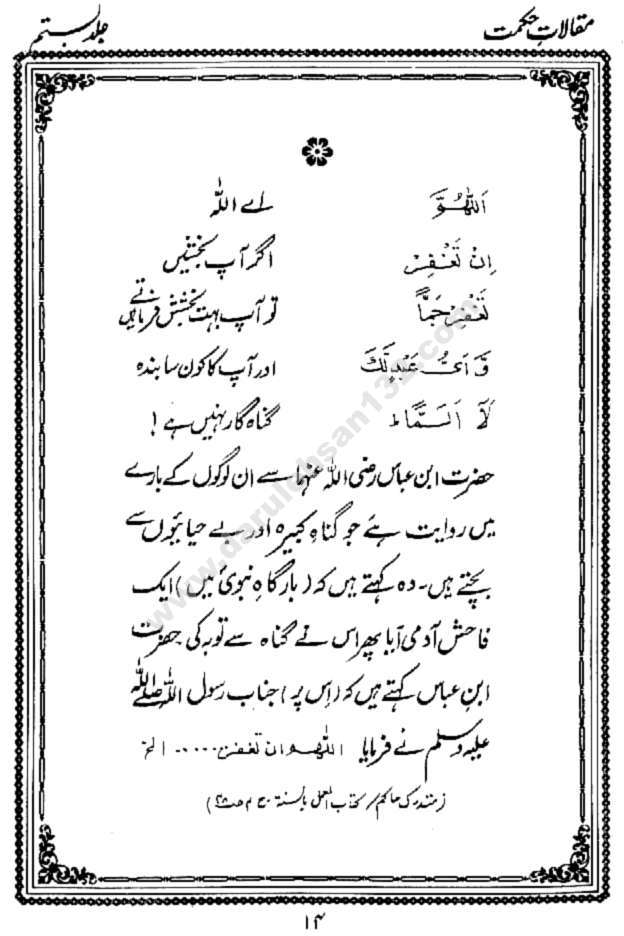 مقالاتِ حکمت جلد بستم
اَللّٰھُمَّ اے اللہ
اِنْ تَغْفِرْ اگر آپ بخشیں
تَغْفِرْ جَمًّا تو آپ بہت بخشش فرماتے ہیں
وَّ اَیُّ عَبْدٍ لَّکَ اور آپ کا کون سا بندہ
لَآ اَلَمَّا گناہ گار نہیں ہے!
حضرت ابن عباس رضی اللہ عنہما سے ان لوگوں کے بارے
میں روایت ہے جو گناہِ کبیرہ اور بے حیائیوں سے
بچتے ہیں۔ وہ کہتے ہیں کہ (بارگاہِ نبوی میں) ایک
فاحش آدمی آیا پھر اس نے گناہ سے توبہ کی حضرت
ابنِ عباس کہتے ہیں کہ (اس پر) جناب رسول اللہ صلی اللہ
علیہ وسلم نے فرمایا اللھم ان تغفر..... الخ
(مستدرک حاکم/ کتاب
۱۴
www.darulehsan132.com